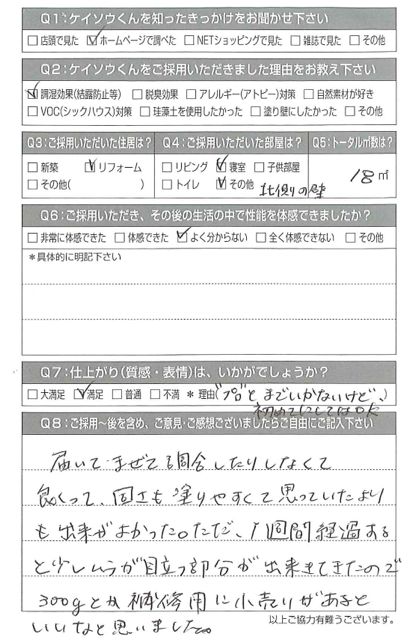 Q1:ケイソウくんを知ったきっかけをお聞かせ下さい
□店頭で見た ☑ホームページで調べた □NETショッピングで見た □雑誌で見た □その他
Q2:ケイソウくんをご採用いただきました理由をお教え下さい
☑調湿効果(結露防止等) □脱臭効果 □アレルギー(アトピー)対策 □自然素材が好き
□VOC(シックハウス)対策 □珪藻土を使用したかった □塗り壁にしたかった □その他
Q3:ご採用いただいた住居は? Q4:ご採用いただいた部屋は? Q5:トータル㎡数は?
□新築 ☑リフォーム □リビング ☑寝室 □子供部屋 18㎡
□その他( ) □トイレ ☑その他 北側の壁
Q6:ご採用いただき、その後の生活の中で性能を体感できましたか?
□非常に体感できた □体感できた ☑よく分からない □全く体感できない □その他
*具体的に明記下さい
Q7:仕上がり(質感・表情)は、いかがでしょうか?
□大満足 ☑満足 □普通 □不満 *理由("プロ"とまでいかないけど、)
初めてにしてはOK
Q8:ご採用〜後を含め、ご意見・ご感想ございましたらご自由にご記入下さい
届いてまぜて調合したりしなくて
良くって、固さも塗りやすくて思っていたより
も出来がよかった。ただ、1週間経過する
と少しムラが目立つ部分が出来てきたので
300gとか補修用に小売りがあると
いいなと思いました。
以上ご協力有難うございます。